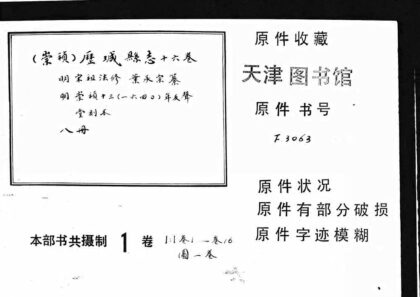 (崇禎)歷城縣志十六卷
明 宋祖法修 葉承宗纂
明崇禎十三(一六四〇)年友聲
堂刻本
八冊
原件收藏
天津图书馆
原件书号
F3063
原件状况
原件有部分破损
原件字迹模糊
本部书共摄制 1 卷
卷1—卷16
图一卷